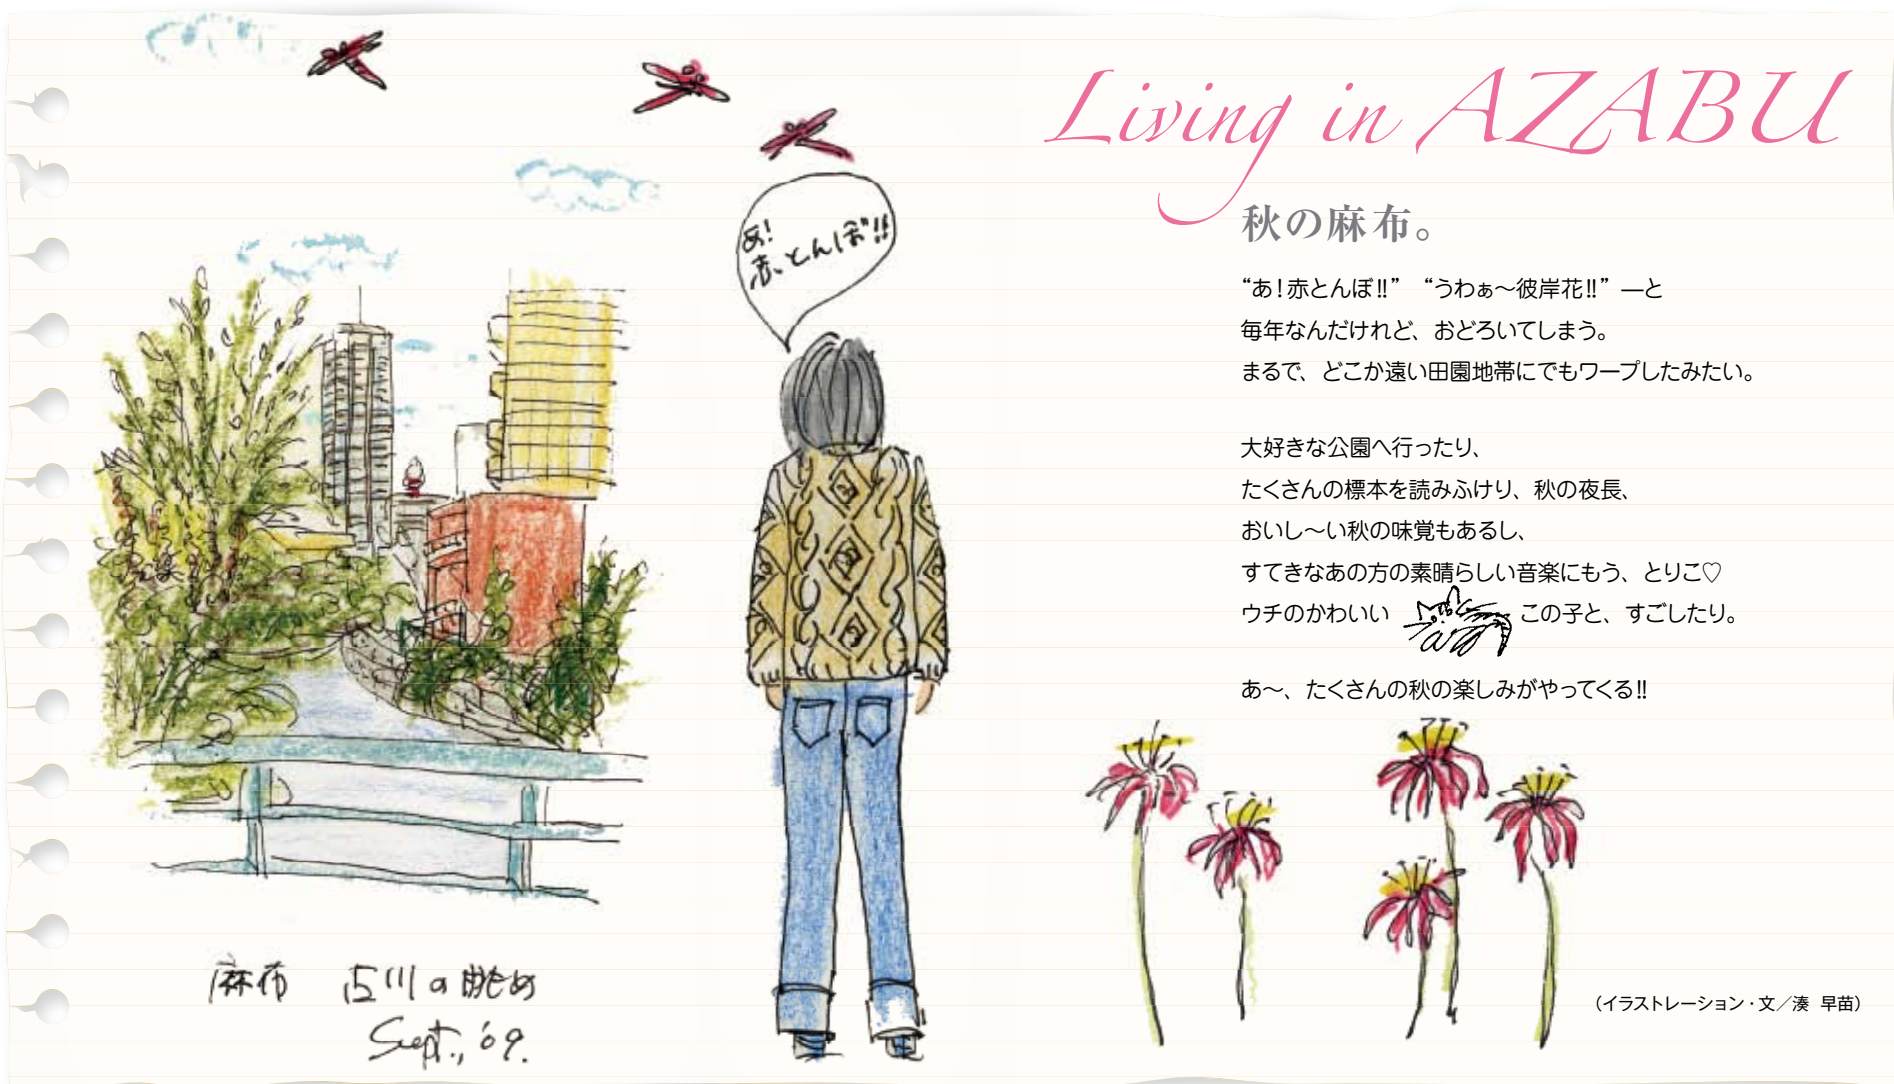 Living in AZABU
秋の麻布。
“あ!赤とんぼ!!” “うわぁ〜彼岸花!!” ―と
毎年なんだけれど、おどろいてしまう。
まるで、どこか遠い田園地帯にでもワープしたみたい。
大好きな公園へ行ったり、
たくさんの標本を読みふけり、秋の夜長、
おいし〜い秋の味覚もあるし、
すてきなあの方の素晴らしい音楽にもう、とりこ♡
ウチのかわいい この子と、すごしたり。
あ〜、たくさんの秋の楽しみがやってくる!!
(イラストレーション・文/湊 早苗)
あ!
赤とんぼ!!
麻布 古川の眺め
Sept., '09.